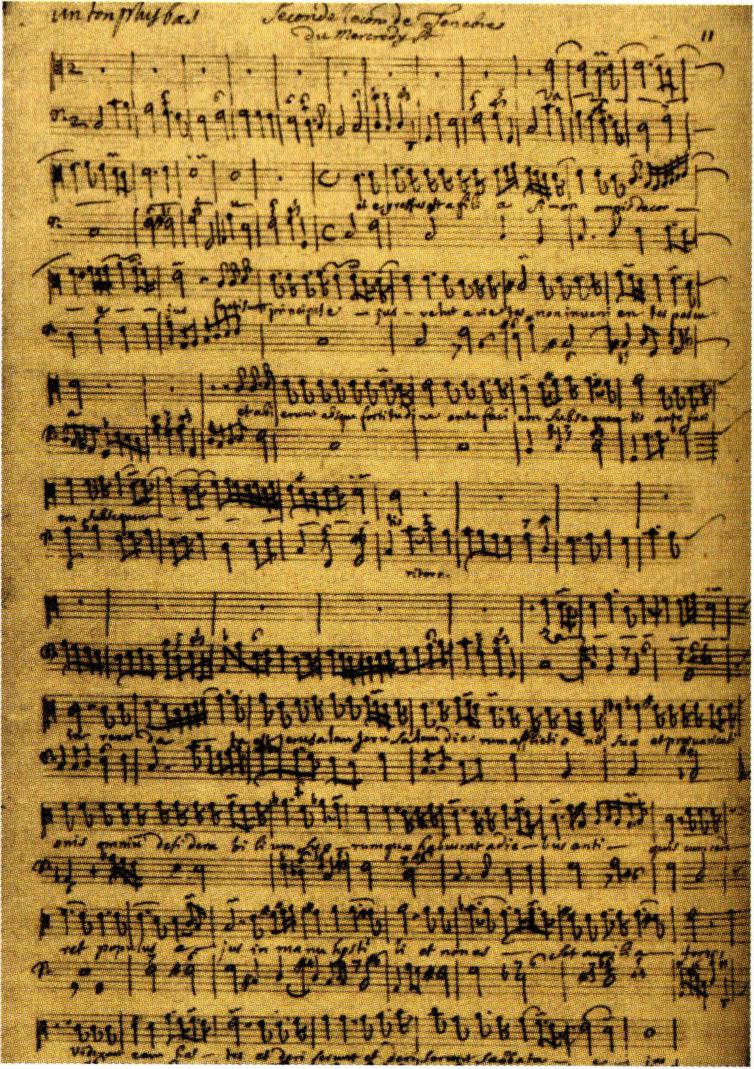 un ton plus bas
Seconde lecon de Tenebres
du Mercredy
11
et egressus est a fili a si - on omnis decor
e - jus principes e - jus - velut a rie tes non inveni en tes pascu
a et abi erunt absque fortitudi ne ante faci em subsequen tis ante faci
em subsequen - - - tis
ritor.
Jerusalem Jerusalem die rum afflicti o nis sua et prevaricati
onis omnium desidera bi li um suo - rum qua habuerat a die - bus anti - quis cum cade
ret populus e - jus in manu hosti li et non es - set auxili a - tor
viderunt eam hos - tes et deri serunt et deri serunt sabbata - e - jus